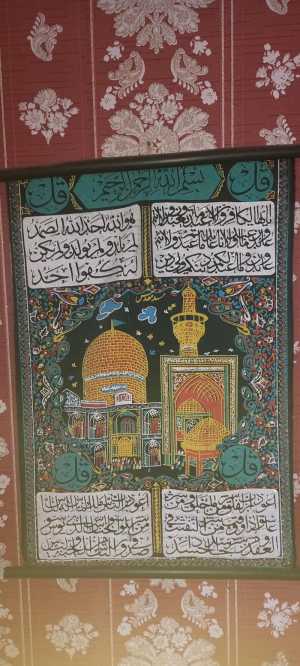 قل
بسم الله الرحمن الرحيم
قل
يا ايها الكافرون لا اعبد ما تعبدون ولا انتم
عابدون ما اعبد ولا انا عابد ما عبدتم ولا انتم
عابدون ما اعبد لكم دينكم ولي دين
هو الله احد الله الصمد
لم يلد ولم يولد ولم يكن
له كفوا احد
قل
قل
اعوذ برب الفلق من شر ما خلق و من شر
غاسق اذا وقب و من شر النفاثات في
العقد و من شر حاسد اذا حسد
اعوذ برب الناس ملك الناس اله الناس
من شر الوسواس الخناس الذي يوسوس
في صدور الناس من الجنة و الناس